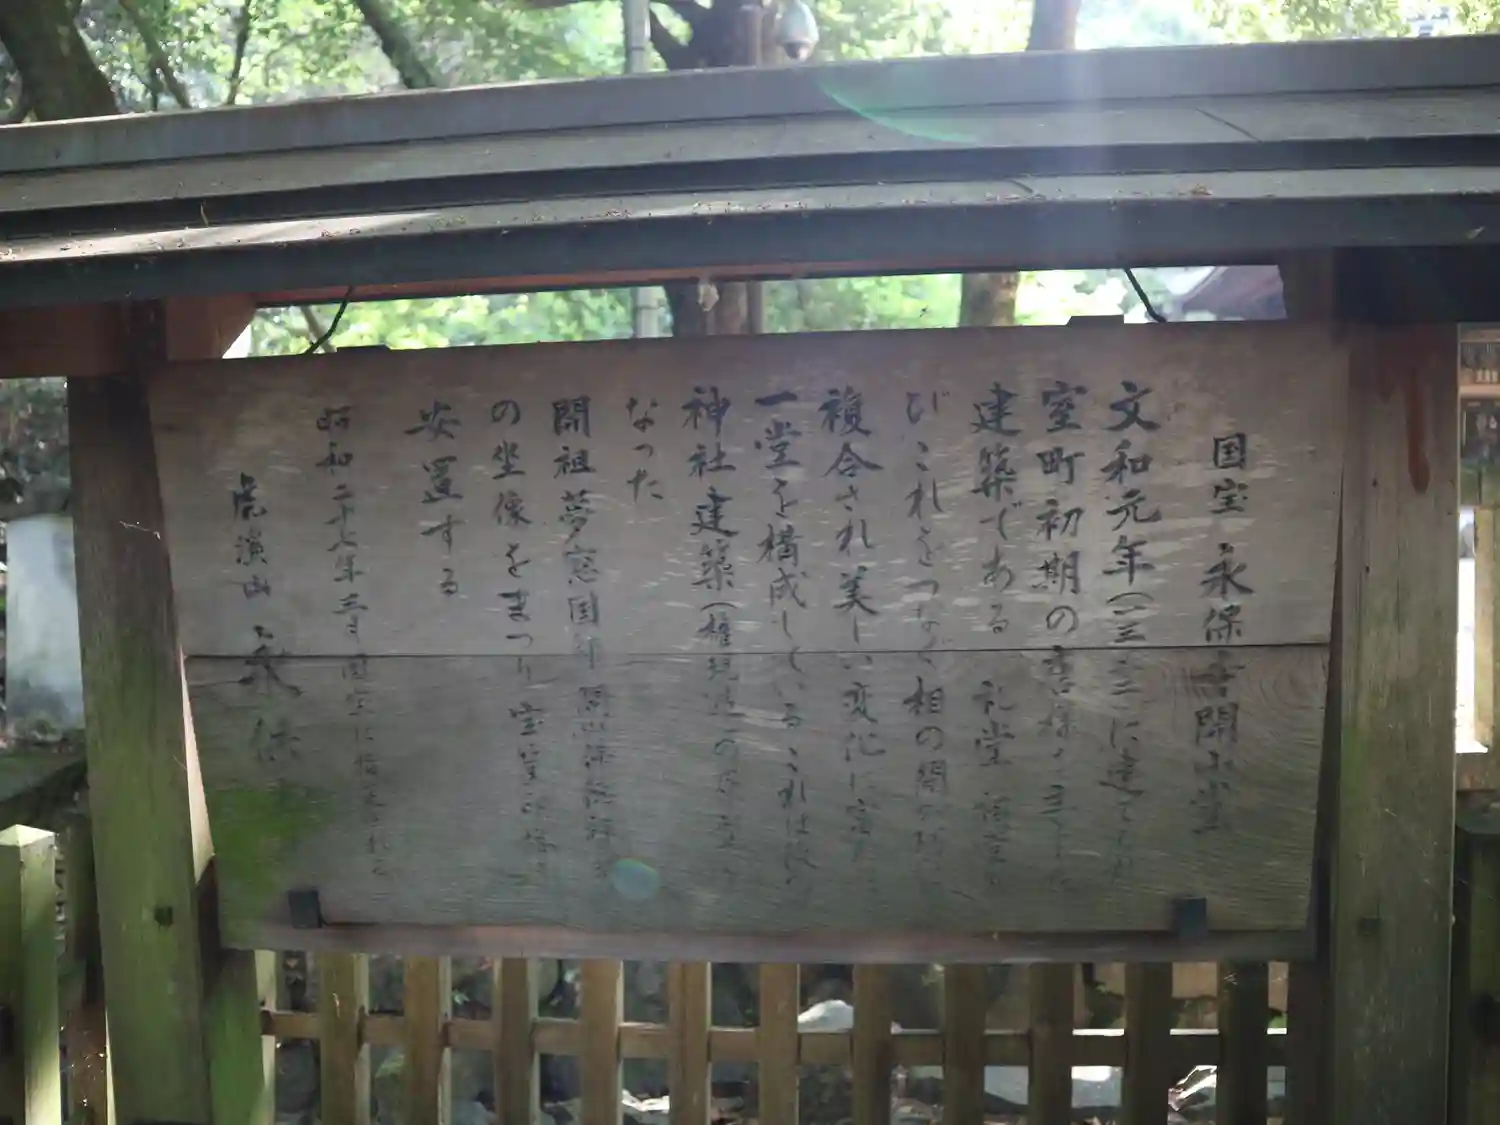 国宝 永保寺開山堂
文和元年(一三五二)に建てられ
室町初期の唐様を主とした
建築である 礼堂 祠堂及
びこれをつなぐ相の間が
複合され美しい変化に富
一堂を構成しているこれは後の
神社建築(権現造)の
なった
開祖夢窓国師 開山保
の坐像をまつり 宝篋印塔を
安置する
昭和二十七年三月 国宝に指定される
虎渓山 永保